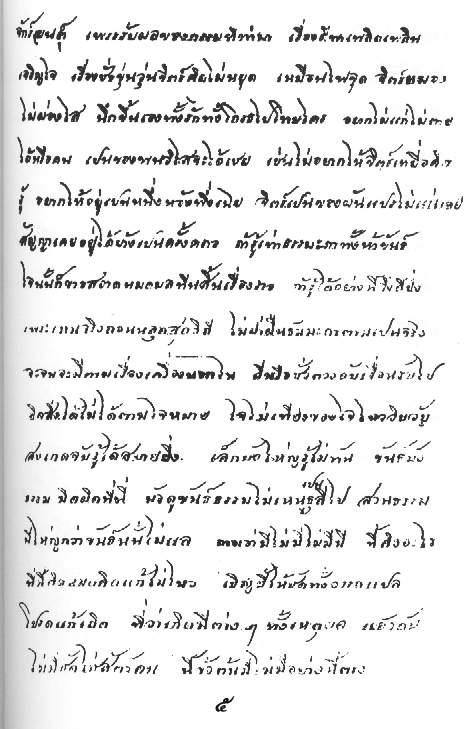 เพราะรับผลของกรรมที่ทำมา เรื่องรักเพลิดเพลิน
เจริญใจ เรื่องชั่วขุ่นวุ่นจิตร์คิดไม่หยุด เหมือนไฟจุด จิตร์หมอง
ไม่ผ่องใส นึกขึ้นเองทั้งรักทั้งโกรธไปโทษใคร อยากไม่แก่ไม่ตาย
ได้หรือคน เปนของพนวิไสจะได้เชย เช่นไม่อยากให้จิตร์เที่ยวคิด
รู้ อยากให้อยู่เปนหนึ่งหวังพึ่งเฉย จิตร์เปนของผันแปรไม่แน่เลย
สัญญาเคยอยู่ได้บ้างเปนครั้งคราว ถ้ารู้เท่าธรรมะดาทั้งห้าขันธ์
ใจนั้นก็ขาวสะอาดหมดมลทินสิ้นเรื่องราว ถ้ารู้ได้อย่างนี้จึงดียิ่ง
เพราะเหนจริงถอนหลุดสุดวิถี ไม่ฝ่าฝืนธรรมะดาตามเปนจริง
จะจนจะมีตามเรื่องเครื่องนอกใน ดีหรือชั่วต้องดับเลื่อนลับไป
ยึดสิ่งใดไม่ได้ตามใจหมาย ใจไม่เที่ยงของใจไหววิบวับ
สังเกตจับรู้ได้สบายยิ่ง เล็กบังใหญ่รู้ไม่ทัน ขันธ์บัง
ธรรม มิดผิดที่นี่ มัวดูขันธ์ธรรมไม่เหนเปนธุลีไป ส่วนธรรม
มีใหญ่กว่าขันธ์นั้นไม่แล ถามว่ามีไม่มีไม่มีมี นี้คืออะไร
ทีนี้ติดหมดคิดแก้ไม่ไหว เชิญชี้ให้ชัดทั้งอรถแปล
โปรดแก้เถิด ที่ว่าเกิดมีต่าง ๆ ทั้งเหตุผล แล้วดับ
ไม่มีชัดใช่สัตว์คน นี้ข้อต้นมีไม่มีอย่างนี้ตรง
๕